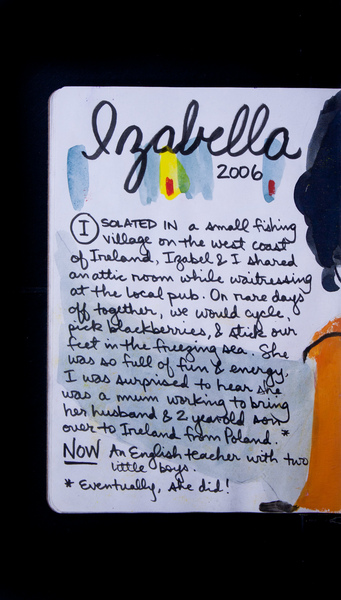 Izabella
2006
ISOLATED IN a small fishing
village on the west coast
of Ireland, Izabel & I shared
an attic room while waitressing
at the local pub. On rare days
off together, we would cycle,
pick blackberries, & stick our
feet in the freezing sea. She
was so full of fun & energy.
I was surprised to hear she
was a mum working to bring
her husband & 2 year old son
over to Ireland from Poland.*
NOW An English teacher with two
little boys.
* Eventually, she did!